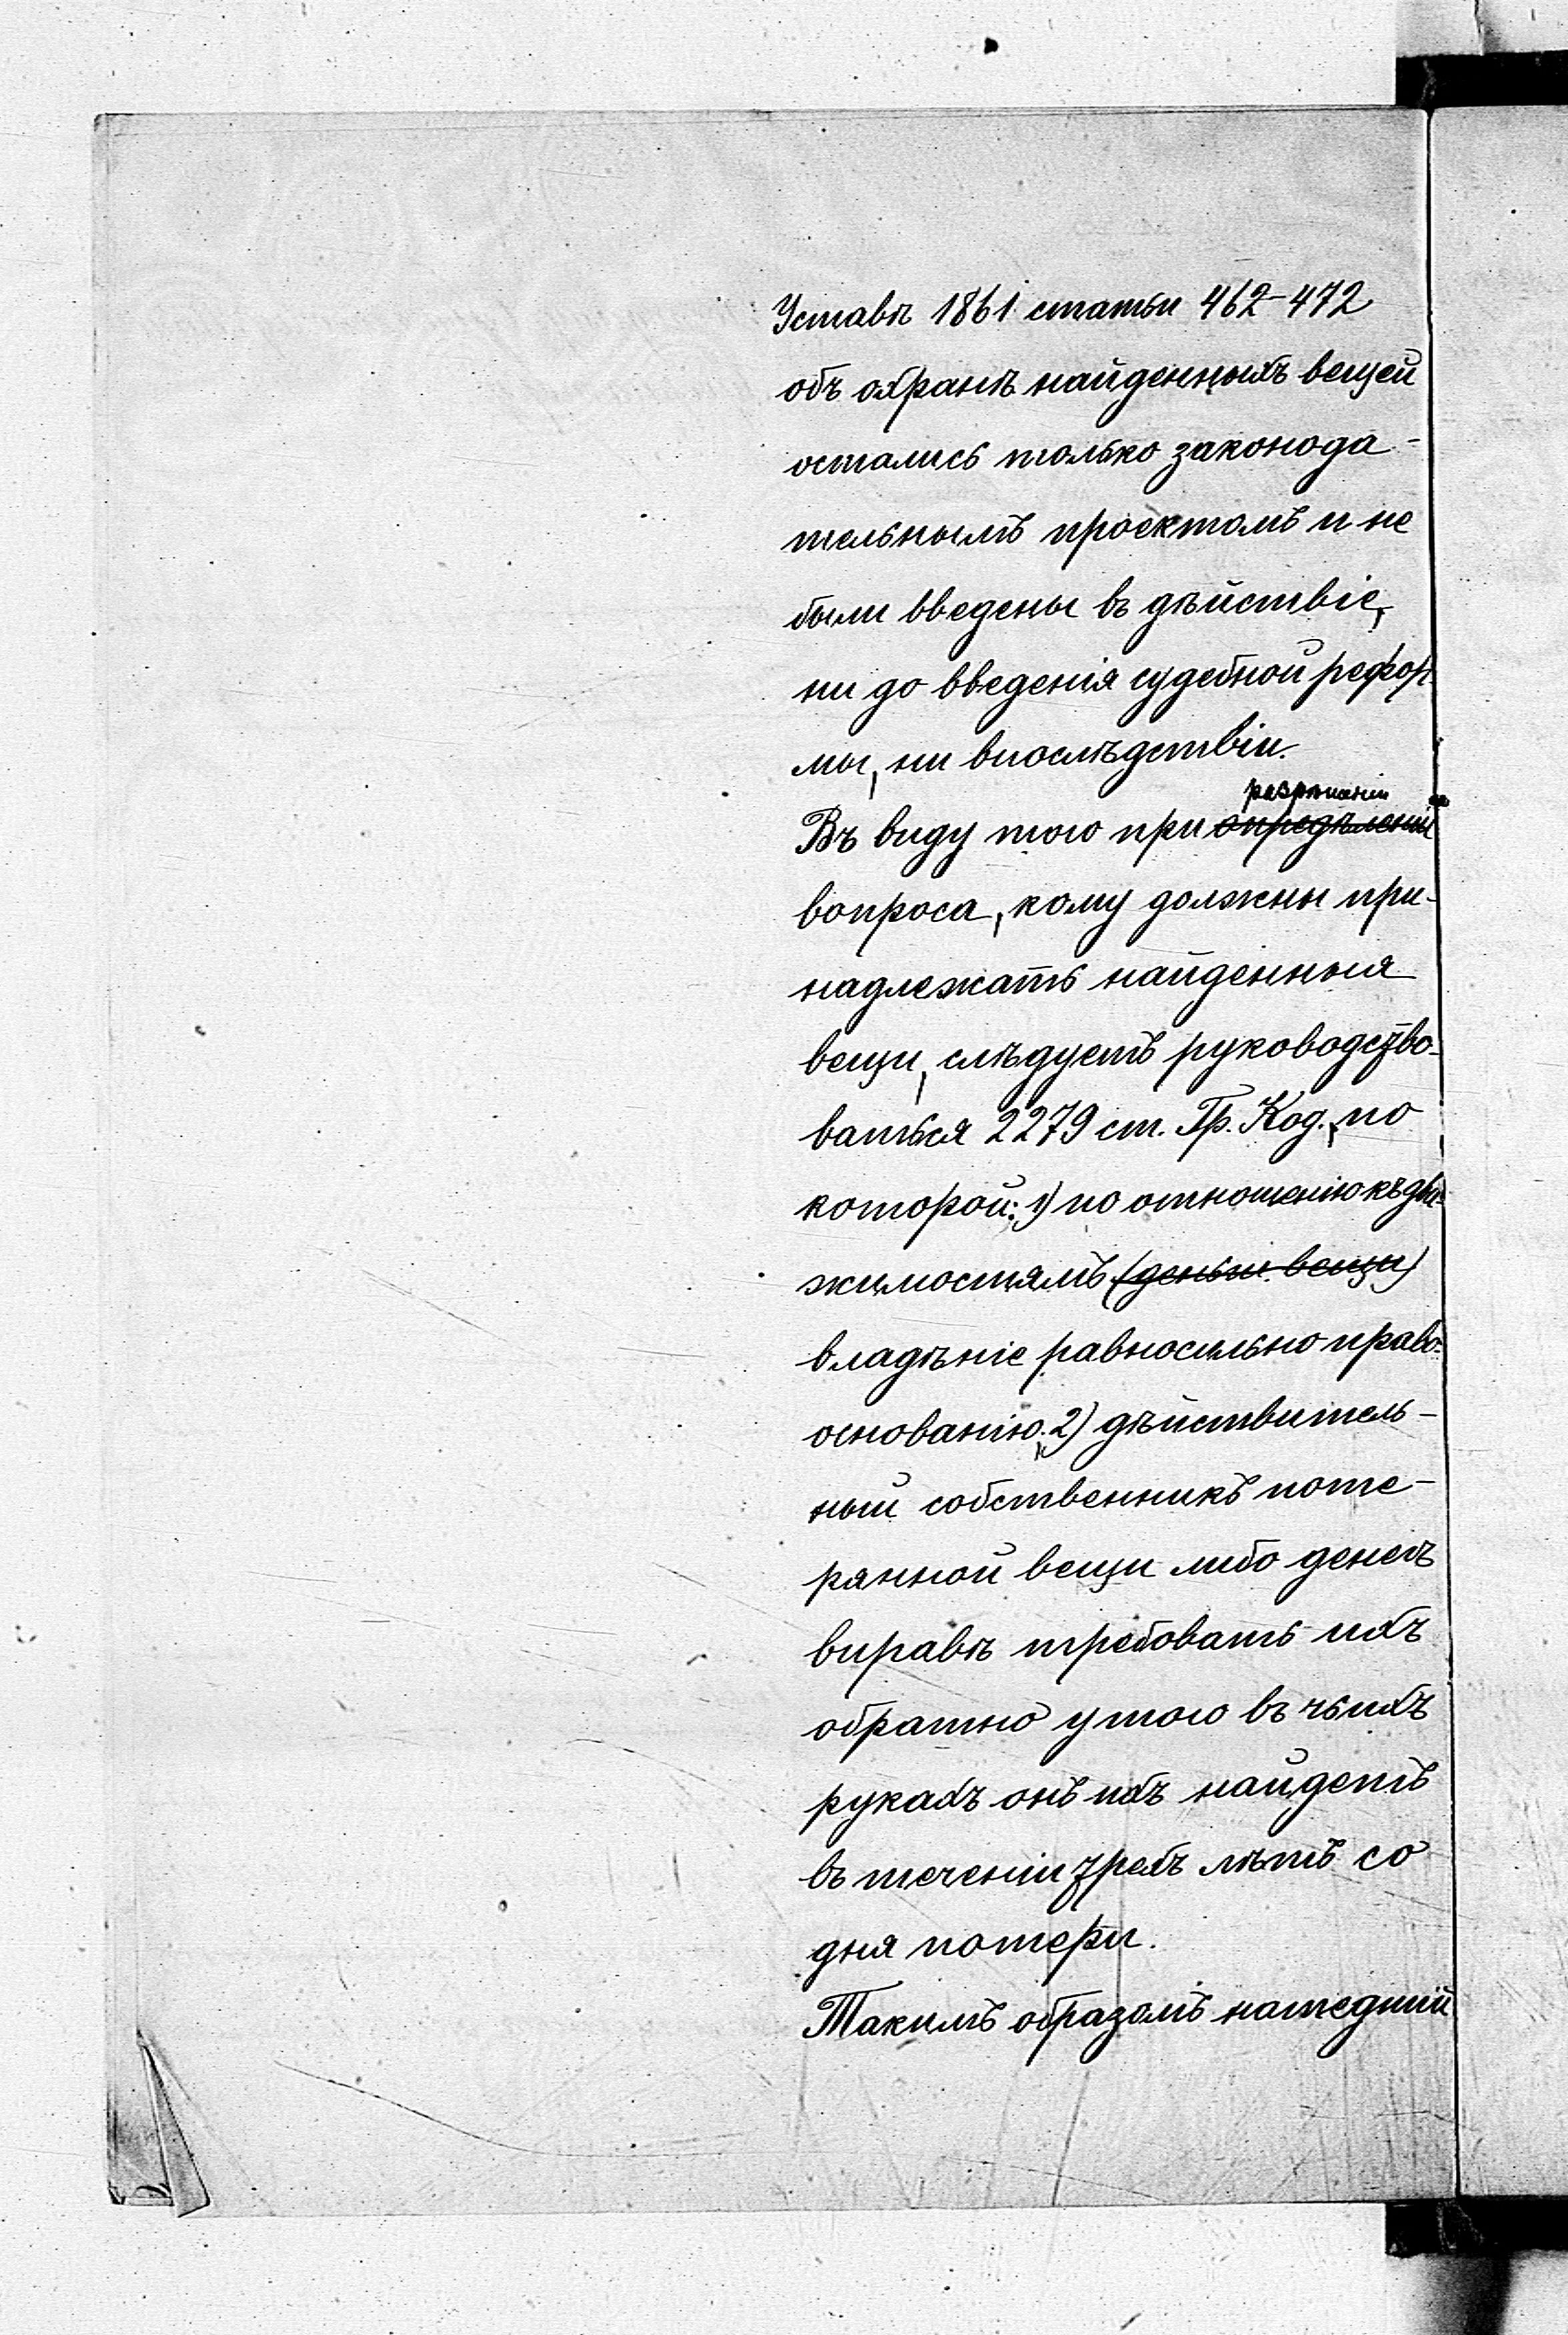 Уставѣ 1861 статьи 462-472
объ охранѣ найденныхъ вещей
остались только законода-
тельнымъ проектомъ и не
были введены въ дѣйствіе,
ни до введенія судебной рефор-
мы, ни впослѣдствіи.
разрѣшеніи
Въ виду того при опредѣленіи
вопроса, кому должны при-
надлежать найденныя
вещи, слѣдуетъ руководство-
ваться 2279 ст. Гр. Код., по
которой: 1) по отношенію къ дви-
жимостямъ (деньги вещи)
владѣніе равносильно право-
основанію. 2) дѣйствитель-
ный собственникъ поте-
рянной вещи либо денегъ
вправѣ требовать ихъ
обратно у того въ чьихъ
рукахъ онъ ихъ найдетъ
въ теченіи трехъ лѣтъ со
дня потери.
Такимъ образомъ нашедшій